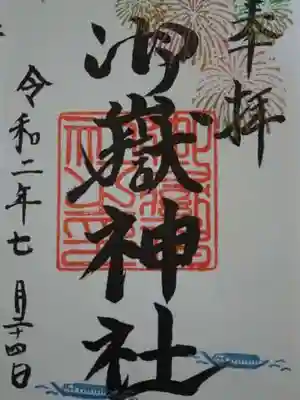 奉拝
御嶽神社
令和二年七月二十四日